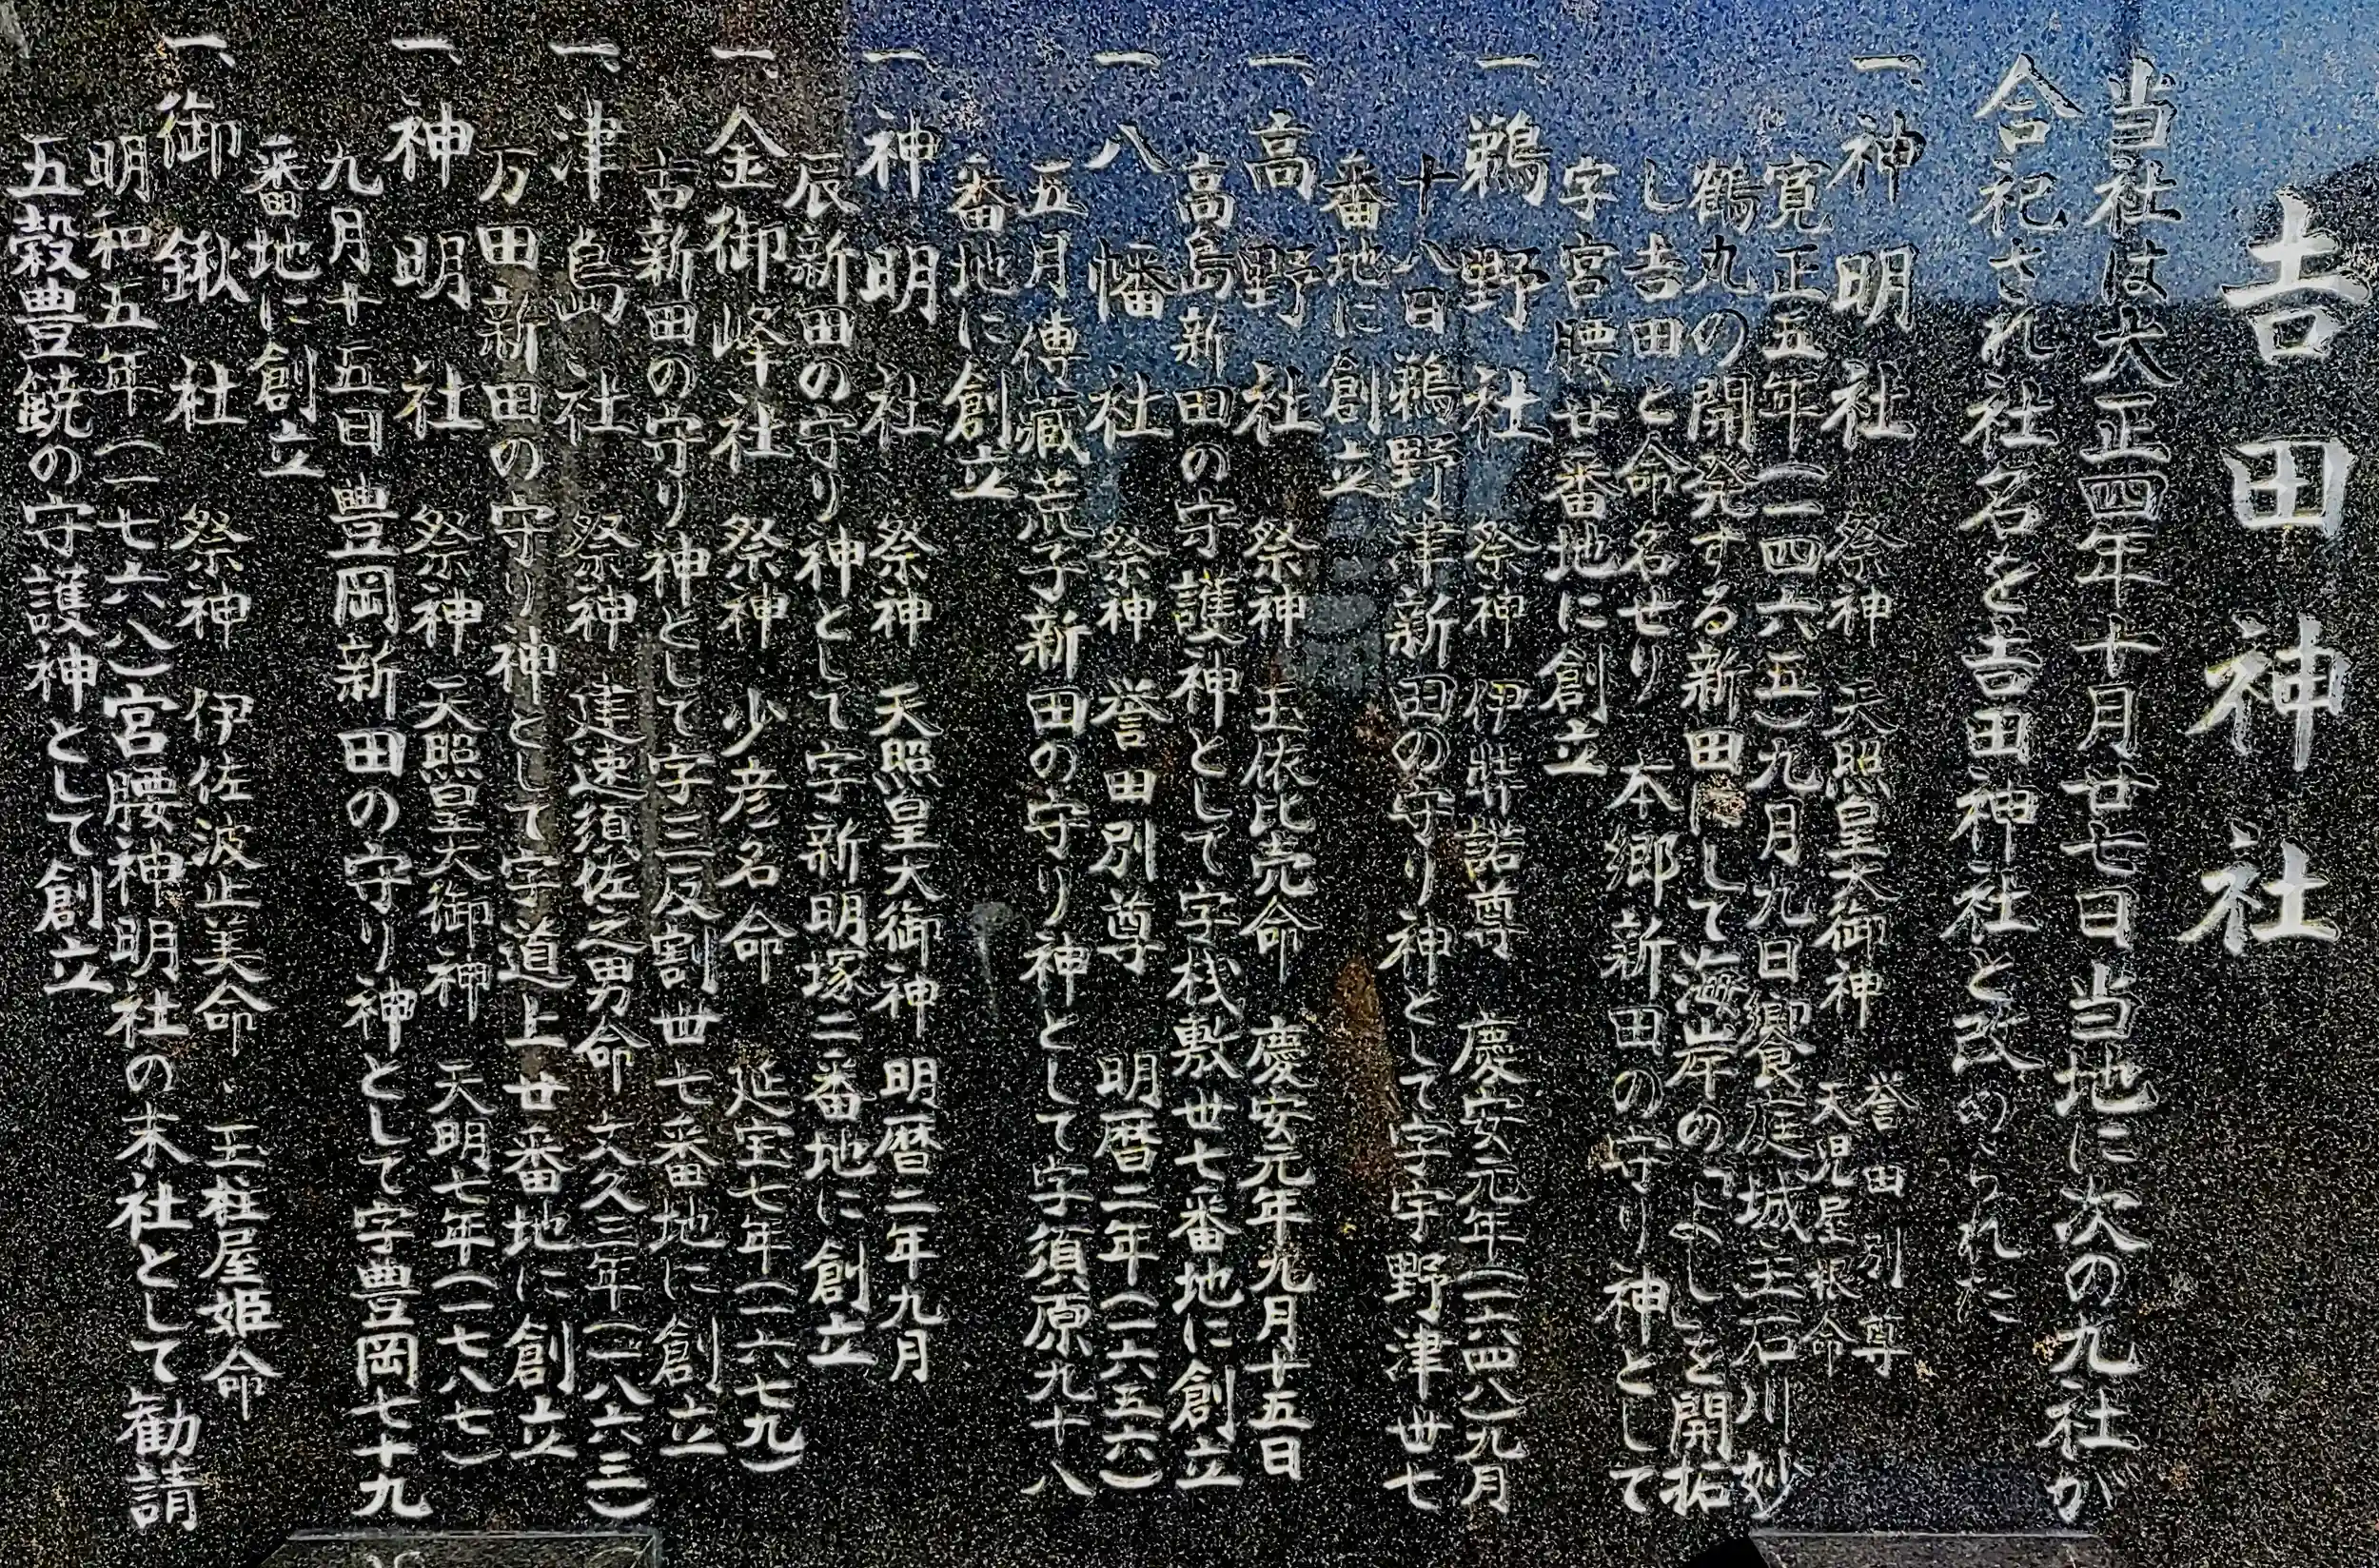 吉田神社
当社は大正四年十月廿七日当地に次の九社が
合祀され社名を吉田神社と改められた
一、神明社 祭神 天照皇大御神 誉田別尊 天児屋根命
寛正五年(一四六五)九月九日饗庭城主石川妙
鶴丸の開発する新田にして海岸のよしを開拓
し吉田と命名せり 本郷新田の守り神として
字宮腰廿番地に創立
一、鵜野社 祭神 伊弉諾尊 慶安元年(一六四八)九月
十八日鵜野津新田の守り神として字宇野津丗七
番地に創立
一、高野社 祭神 玉依比売命 慶安元年九月十五日
高島新田の守護神として字桟敷丗七番地に創立
一、八幡社 祭神 誉田別尊 明暦二年(一六五六)
五月傳蔵荒子新田の守り神として字須原九十八
番地に創立
一、神明社 祭神 天照皇大御神 明暦二年九月
辰新田の守り神として字新明塚二番地に創立
一、金御峰社 祭神 少彦名命 延宝七年(一六七九)
古新田の守り神として字三反割丗七番地に創立
一、津島社 祭神 建速須佐之男命 文久三年(一八六三)
万田新田の守り神として字道上廿番地に創立
一、神明社 祭神 天照皇大御神 天明七年(一七八七)
九月十五日豊岡新田の守り神として字豊岡七十九
番地に創立
一、御鍬社 祭神 伊佐波止美命、玉柱屋姫命
明和五年(一七六八)宮腰神明社の末社として勧請
五穀豊饒の守護神として創立